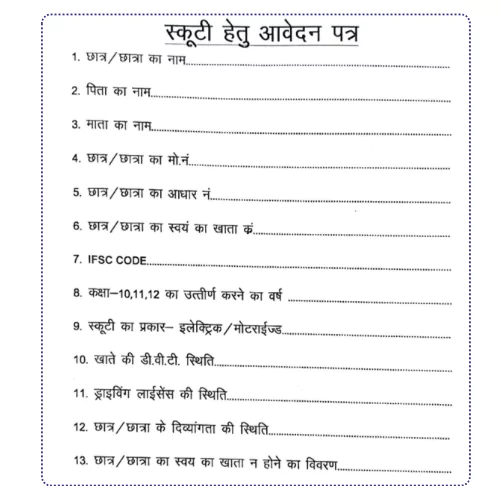 स्कूटी हेतु आवेदन पत्र
1. छात्र/छात्रा का नाम
2. पिता का नाम
3. माता का नाम
4. छात्र/छात्रा का मो.नं.
5. छात्र/छात्रा का आधार नं.
6. छात्र/छात्रा का स्वयं का खाता कं.
7. IFSC CODE
8. कक्षा–10,11,12 का उत्तीर्ण करने का वर्ष
9. स्कूटी का प्रकार– इलेक्ट्रिक/मोटराईज्ड
10. खाते की डी.वी.टी. स्थिति
11. ड्राइविंग लाईसेंस की स्थिति
12. छात्र/छात्रा के दिव्यांगता की स्थिति
13. छात्र/छात्रा का स्वय का खाता न होने का विवरण